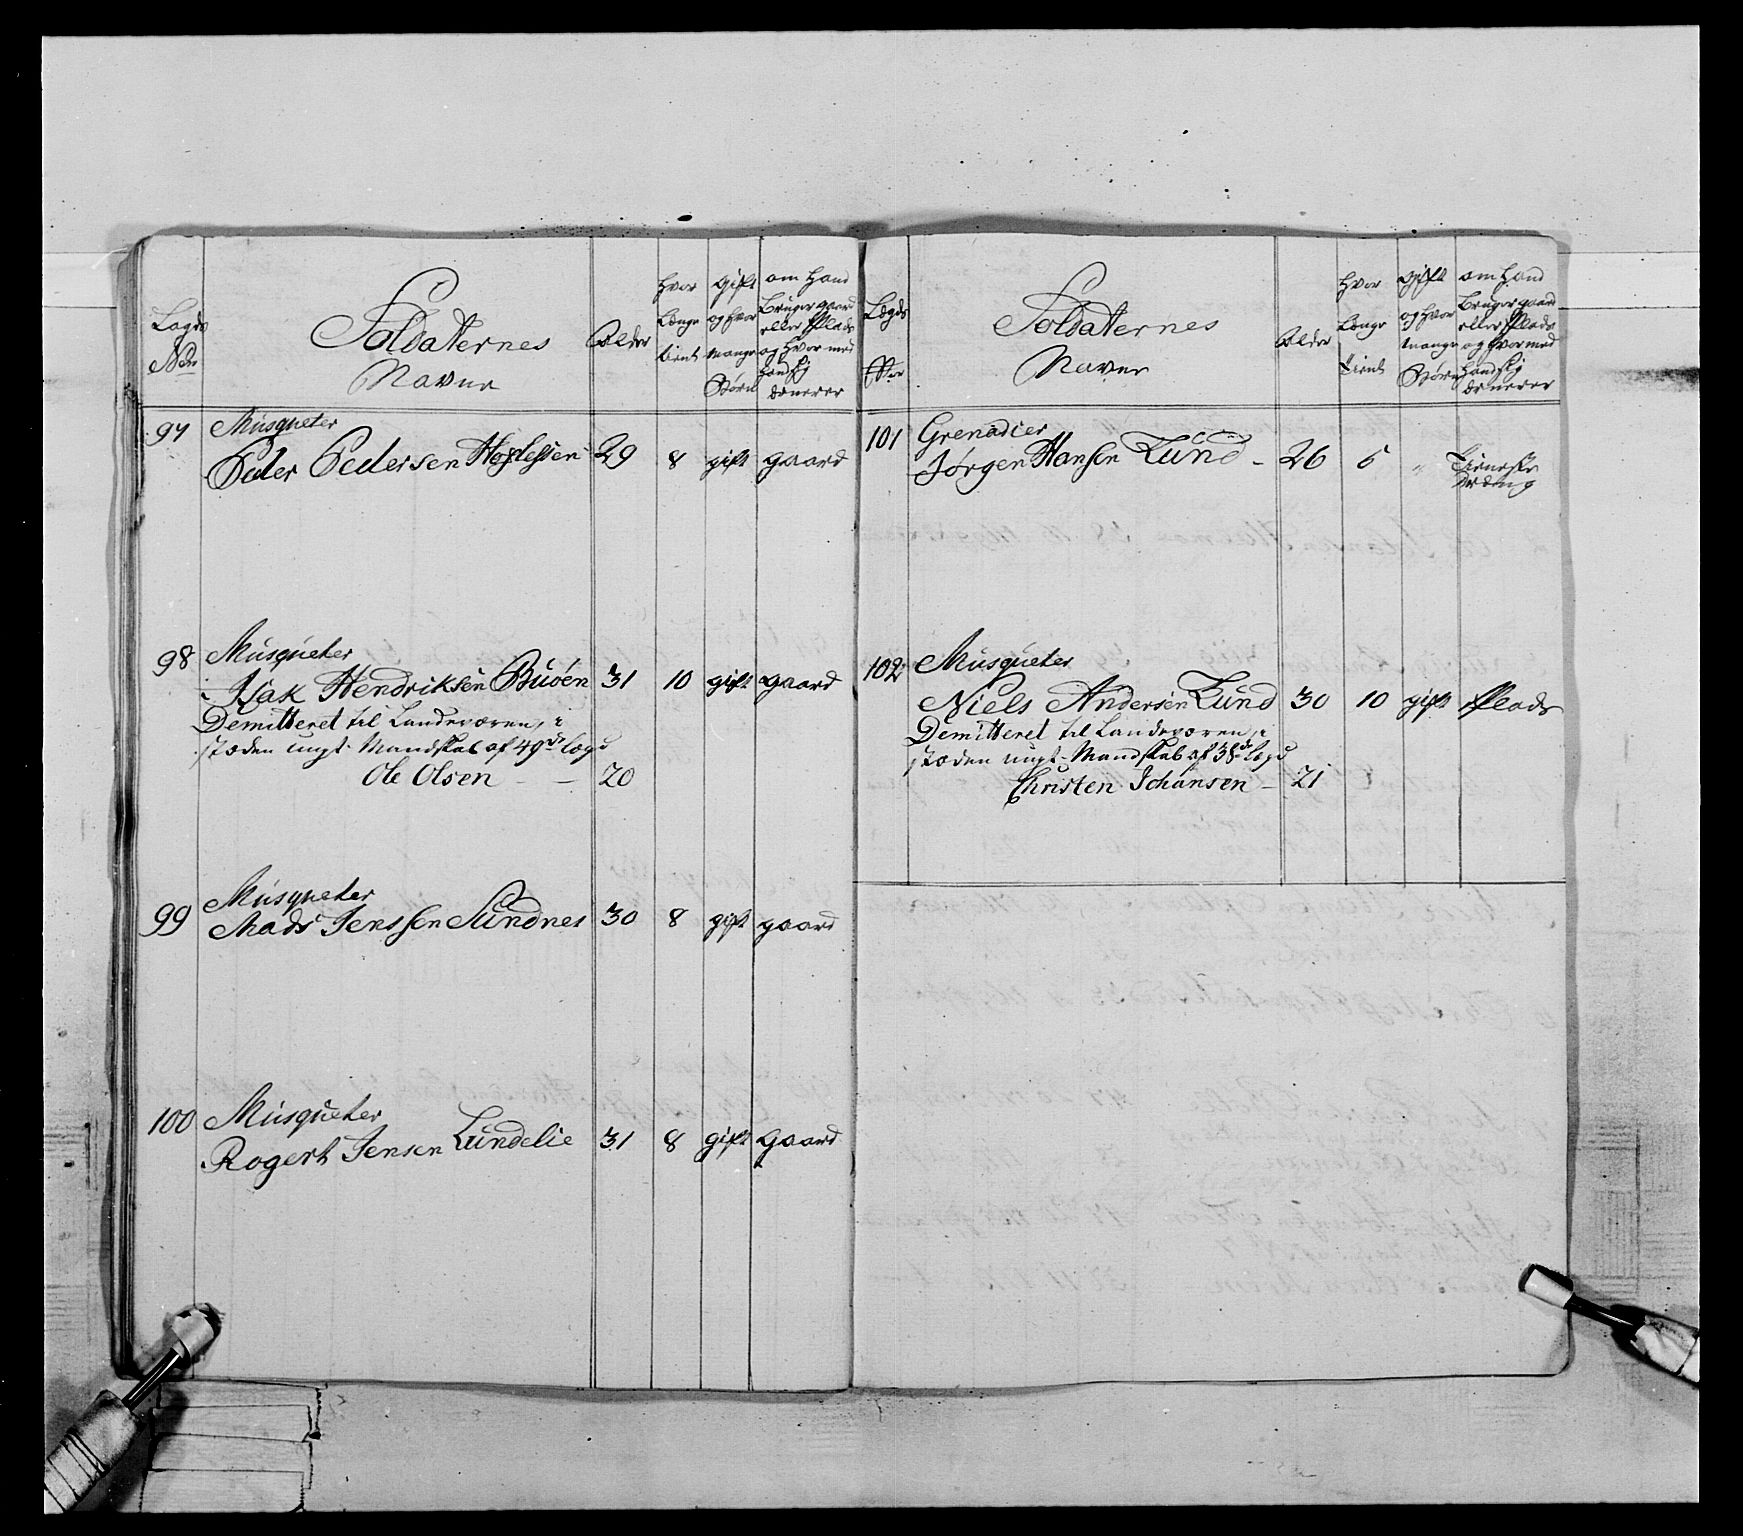 Lægds
No
Soldatternes
Navne
Alder
hvor
længe
tient
gift
og hvor
mange
Børn
om hand
bruger gaard
eller Plads
og hvor med
hand sig
ernerer
97
Musqueter
Peder Pedersen
29
8
gift
gaard
98
Musqueter
Isak Hendriksen Buøen
31
10
gift
gaard
Demitteret til Landeværen, i
stæden ungt Mandskab af 49de lægd
Ole Olsen
20
99
Musqueter
Mads Jenssen Sundnes
30
8
gift
gaard
100
Musqueter
Rogert Jensen Lundelie
31
8
gift
gaard
Lægds
Soldatternes
Navne
Alder
hvor
længe
tient
gift
og hvor
mange
Børn
om hand
bruger gaard
eller Plads
og hvor med
hand sig
ernerer
101
Grenadier
Jørgen Hansen Lund
26
5
"
tieneste
dræng
102
Musqueter
Niels Andersen Lund
30
10
gift
Plads
Demitteret til Landeværen, i
stæden ungt Mandskab af 38de lægd
Christen Johansen
21